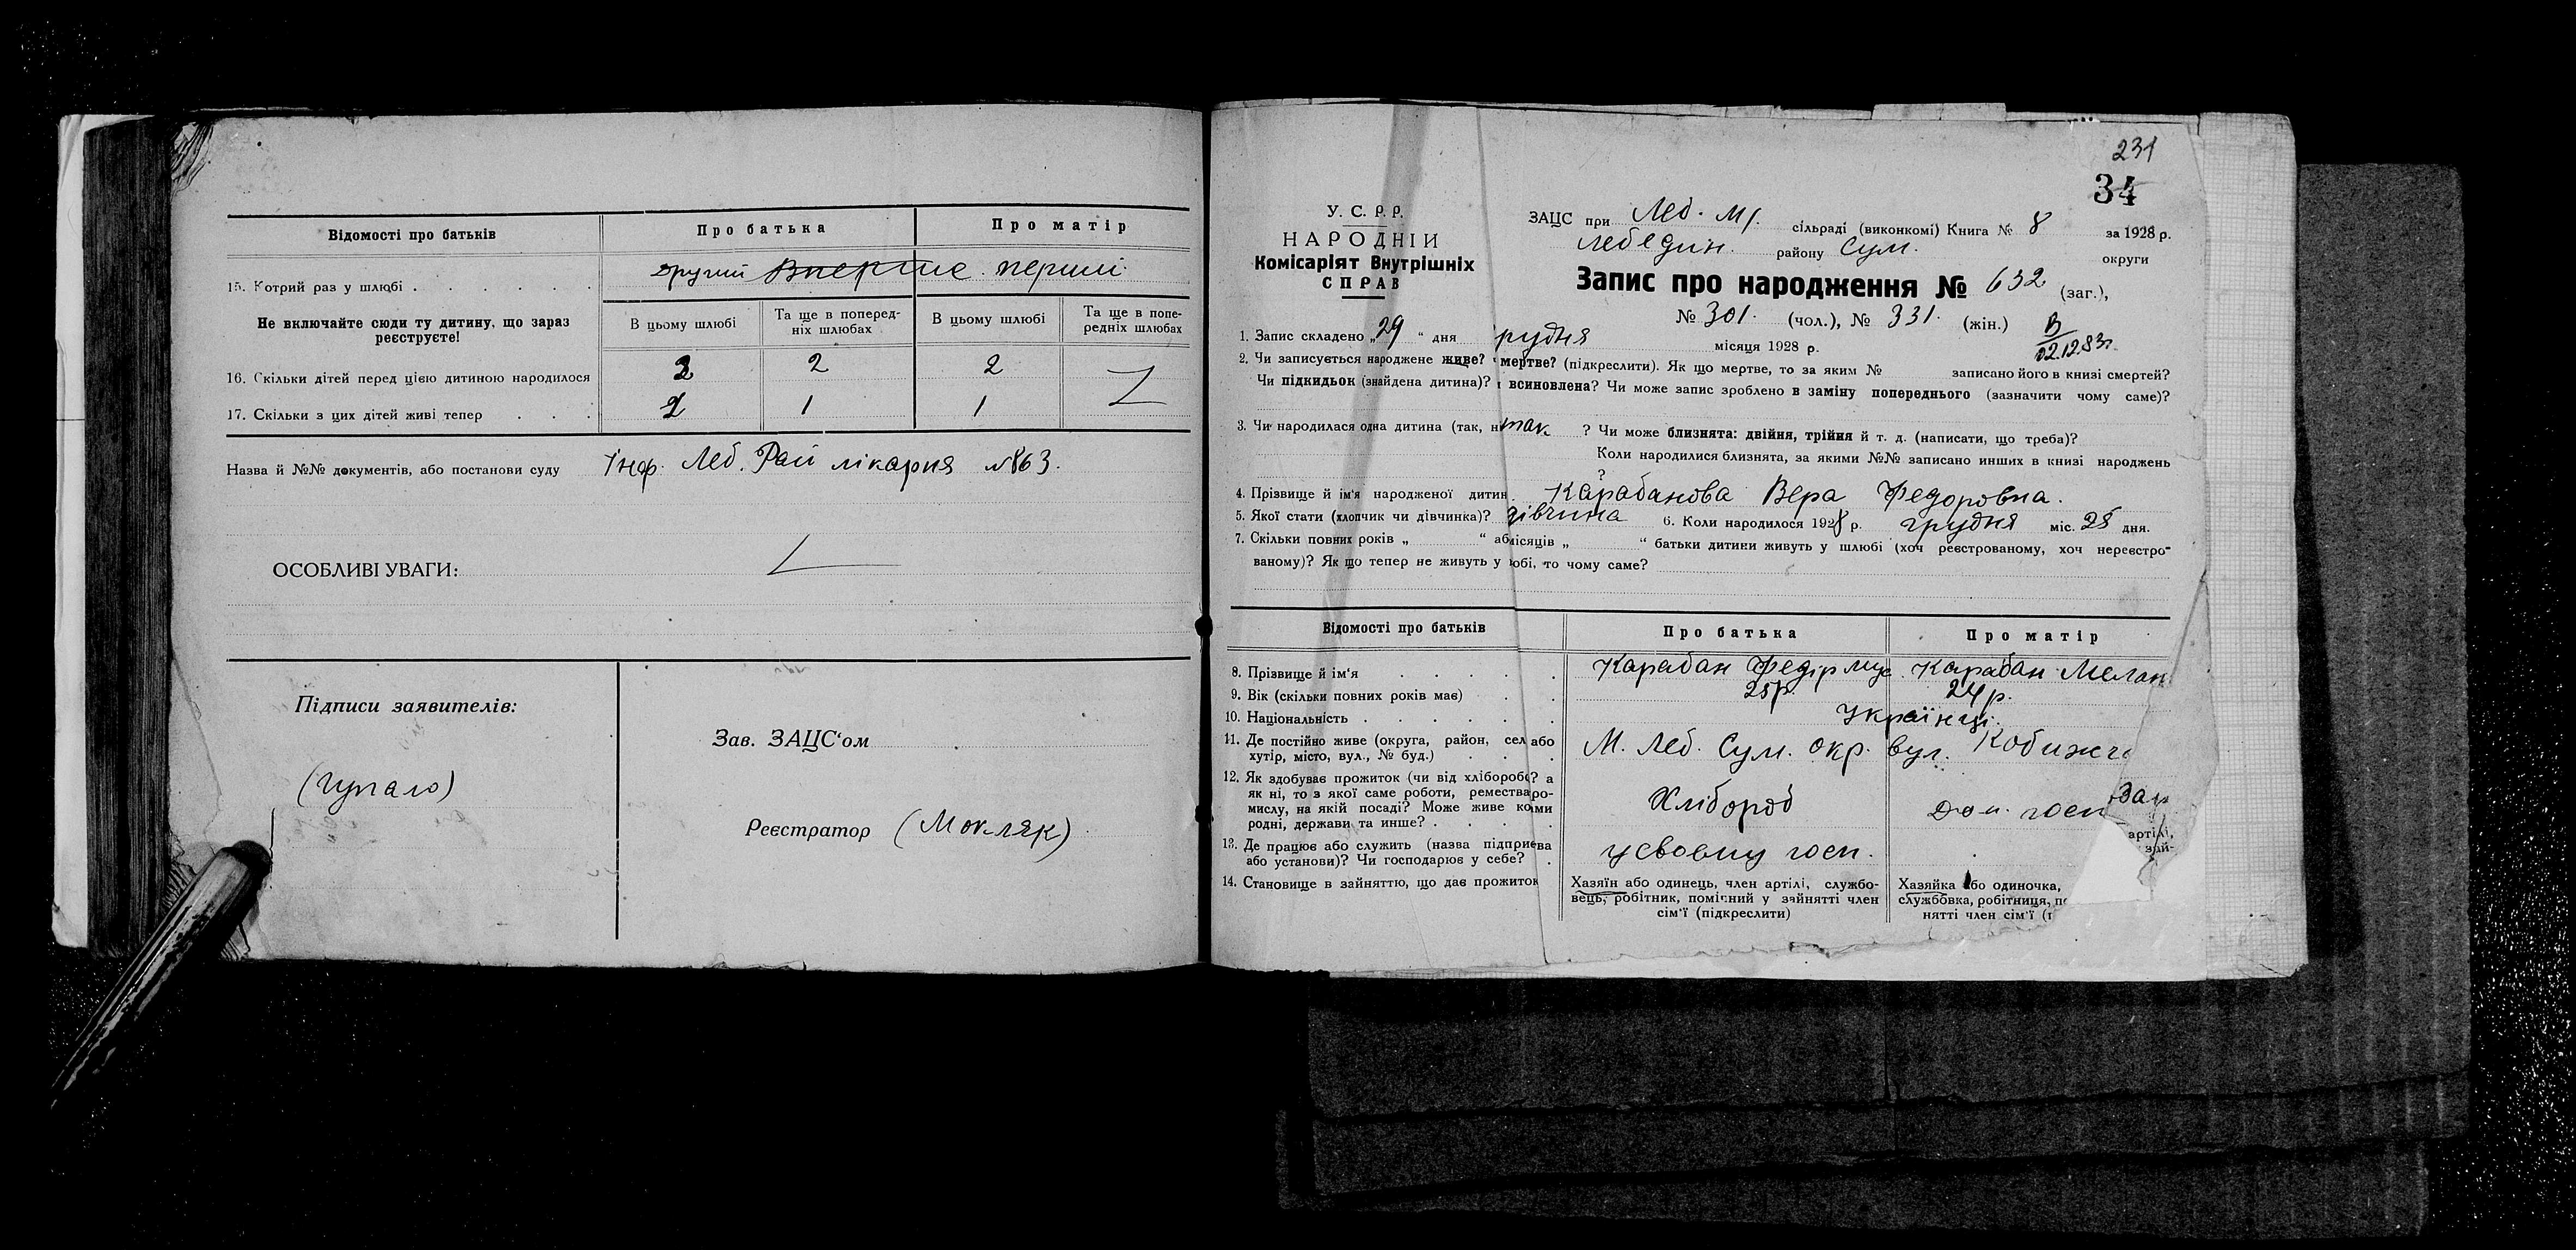 Відомості про батьків
Про батька
Про матір
15. Котрий раз у шлюбі
другий Вперше перший
Не включайте сюди ту дитину, що зараз реєструєте!
В цьому шлюбі
Та ще в попередніх шлюбах
В цьому шлюбі
Та ще в попередніх шлюбах
16. Скільки дітей перед цією дитиною народилося
2 2
17. Скільки з цих дітей живі тепер
1 1
Назва й №№ документів, або постанови суду Інф. Леб. Рай лікарня №863.
ОСОБЛИВІ УВАГИ:
Підписи заявителів:
(Чупало)
Зав. ЗАЦС'ом
Реєстратор (Мокляк)
231
34
У. С. Р. Р.
НАРОДНІЙ
Комісаріят Внутрішніх
СПРАВ
ЗАЦС при Леб. М. сільраді (виконкомі) Книга № 8 за 1928 р.
Лебедин. району Сум. округи
Запис про народження № 632 (заг.),
№ 301. (чол.), № 331. (жін.)
1. Запис складено „29“ дня грудня місяця 1928 р.
2. Чи записується народжене живе? мертве? (підкреслити). Як що мертве, то за яким № записано його в книзі смертей?
Чи підкидьок (знайдена дитина)? всиновлена? Чи може запис зроблено в заміну попереднього (зазначити чому саме)?
3. Чи народилася одна дитина (так, н так ? Чи може близнята: двійня, трійня й т. д. (написати, що треба)?
Коли народилися близнята, за якими №№ записано инших в книзі народжень
?
4. Прізвище й ім'я народженої дитин. Карабанова Вера Федоровна.
5. Якої стати (хлопчик чи дівчинка)? дівчина 6. Коли народилося 1928 р. грудня міс. 28 дня.
7. Скільки повних років „ “ аб місяців „ “ батьки дитини живуть у шлюбі (хоч реєстрованому, хоч нереєстро-
ваному)? Як що тепер не живуть у юбі, то чому саме?
Відомості про батьків
Про батька
Про матір
8. Прізвище й ім'я
Карабан Федір Мус
Карабан Мелан
9. Вік (скільки повних років має)
28р.
24р.
10. Національність
Українці.
11. Де постійно живе (округа, район, сел або
хутір, місто, вул., № буд.)
М. Леб. Сум. окр. вул. Кобижч
12. Як здобуває прожиток (чи від хлібороб ? а
як ні, то з якої саме роботи, ремества ро-
мислу, на якій посаді? Може живе ко ми
родні, держави та инше?
Хлібороб
Дом. госп
13. Де працює або служить (назва підприє ва
або установи)? Чи господарює у себе?
у своєму госп.
артілі,
зай-
14. Становище в зайняттю, що дає прожиток
Хазяїн або одинець, член артілі, службо-
вець, робітник, помічний у зайнятті член
сім'ї (підкреслити)
Хазяйка або одиночка,
службовка, робітниця, п
нятті член сім'ї (п